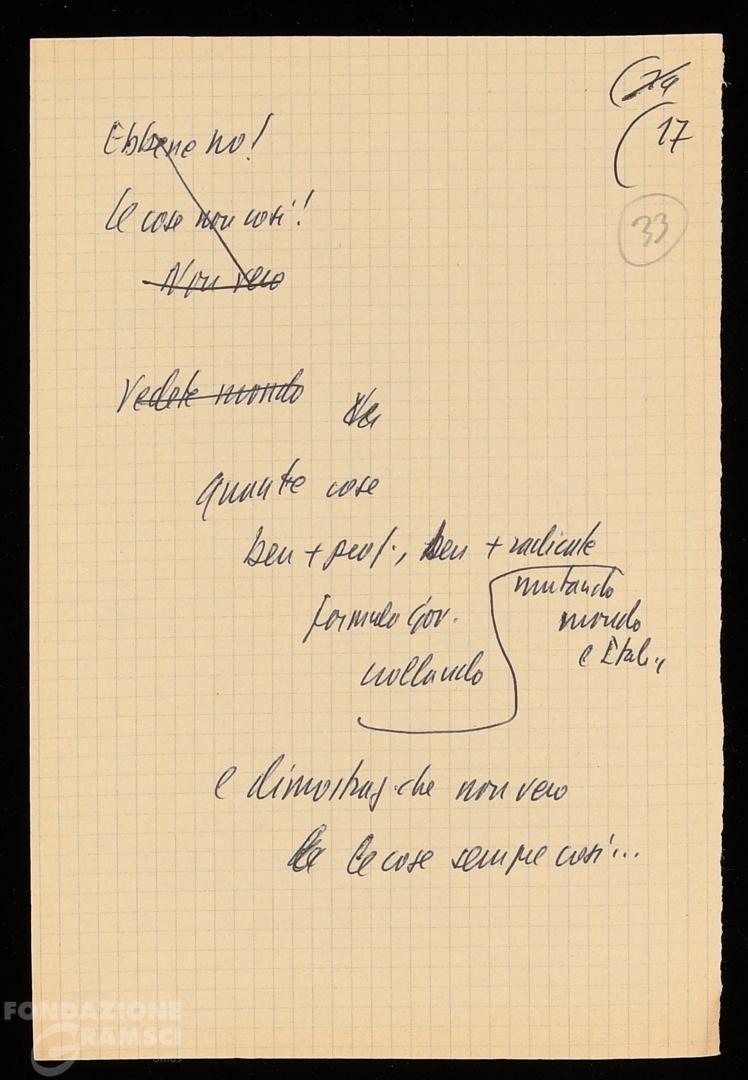 17
33
Ebbene no!
le cose non così!
Non vero
Vedete mondo
quante cose
ben + prof., ben + radicale
formula Gov.
crollando
mutando
mondo
e Ital.,
e dimostraz. che non vero
le cose sempre così...
FONDAZIONE
GRAMSCI
ONLUS